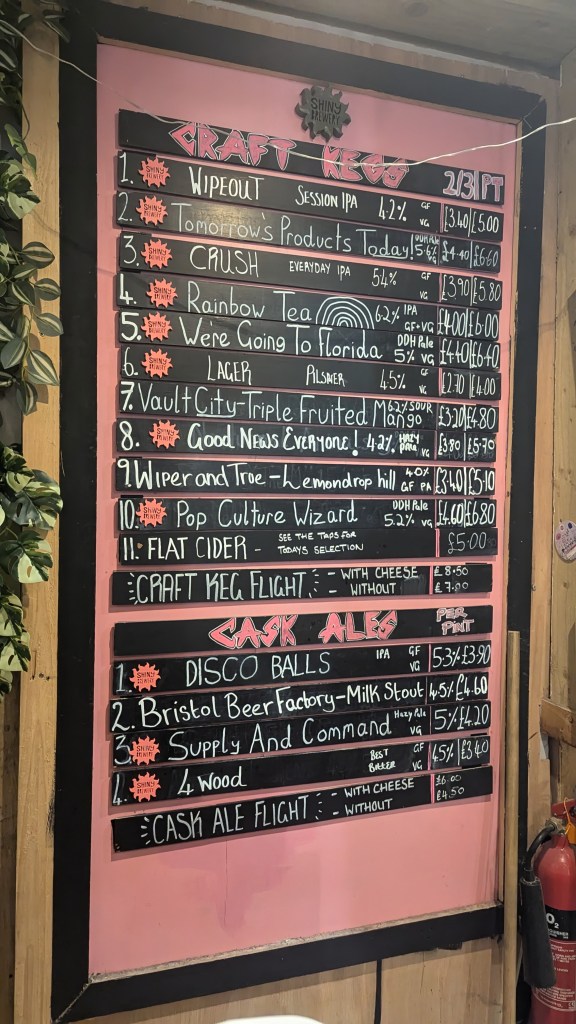 SHINY BREWERY
CRAFT KEGS 2/3 | PT
1. SHINY BREWERY WIPEOUT SESSION IPA 4.2% GF VG £3.40 £5.00
2. SHINY BREWERY Tomorrow's Products Today! DDH Pale 5.6% VG £4.40 £6.60
3. SHINY BREWERY CRUSH EVERYDAY IPA 5.4% GF VG £3.90 £5.80
4. SHINY BREWERY Rainbow Tea 6.2% IPA GF+VG £4.00 £6.00
5. We're Going To Florida DDH Pale 5% VG £4.40 £6.40
6. SHINY BREWERY LAGER PILSNER 4.5% GF VG £2.70 £4.00
7. Vault City-Triple Fruited Mango 6.2% SOUR £3.20 £4.80
8. SHINY BREWERY Good News Everyone! 4.2% HAZY PALE VG £3.80 £5.70
9. Wiper and True - Lemondrop hill 4.0% GF PA £3.40 £5.10
10. SHINY BREWERY Pop Culture Wizard DDH Pale 5.2% VG £4.60 £6.80
11. FLAT CIDER - SEE THE TAPS FOR TODAYS SELECTION £5.00
CRAFT KEG FLIGHT - WITH CHEESE £8.50
- WITHOUT £7.00
CASK ALES PER PINT
1. SHINY BREWERY DISCO BALLS IPA GF VG 5.3% £3.90
2. Bristol Beer Factory-Milk Stout 4.5% £4.60
3. SHINY BREWERY Supply And Command Hazy Pale VG 5% £4.20
4. SHINY BREWERY 4 Wood BEST BITTER GF VG 4.5% £3.40
CASK ALE FLIGHT - WITH CHEESE £6.00
- WITHOUT £4.50
CO2